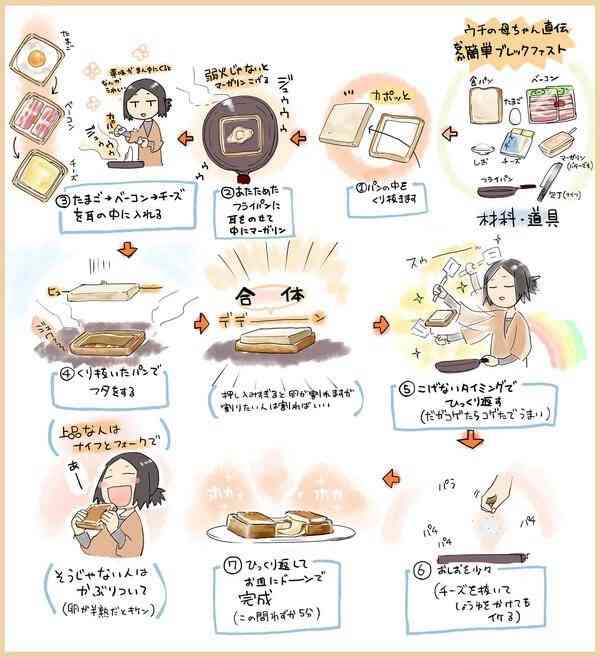 ウチの母ちゃん直伝
簡単ブレックファスト
食パン
たまご
ベーコン
ベーコン
しお
チーズ
マーガリン
(バターでも)
フライパン
包丁(ナイフ)
材料・道具
カポッと
①パンの中を
くり抜きます
弱火じゃないと
マーガリンこげる
ジュウウウ
②あたためた
フライパンに
耳をのせて
中にマーガリン
黄味がまん中にくると
なんか
うれしい
たまご
ベーコン
チーズ
③たまご→ベーコン→チーズ
を耳の中に入れる
ヒュー
④くり抜いたパンで
フタをする
合体
デデーーーン
(押し込みすぎると卵が割れますが
割りたい人は割ればいい)
スゥー
⑤こげないタイミングで
ひっくり返す
(だがコゲたらコゲたでうまい)
パラ
パチ
パチ
パチ
⑥おしおを少々
(チーズを抜いて
しょうゆをかけても
イケる)
ホカ
ホカ
⑦ひっくり返して
お皿にドーンで
完成
(この間わずか5分)
(上品な人は
ナイフとフォークで)
あー
(そうじゃない人は
かぶりついて
(卵が半熟だとキケン))